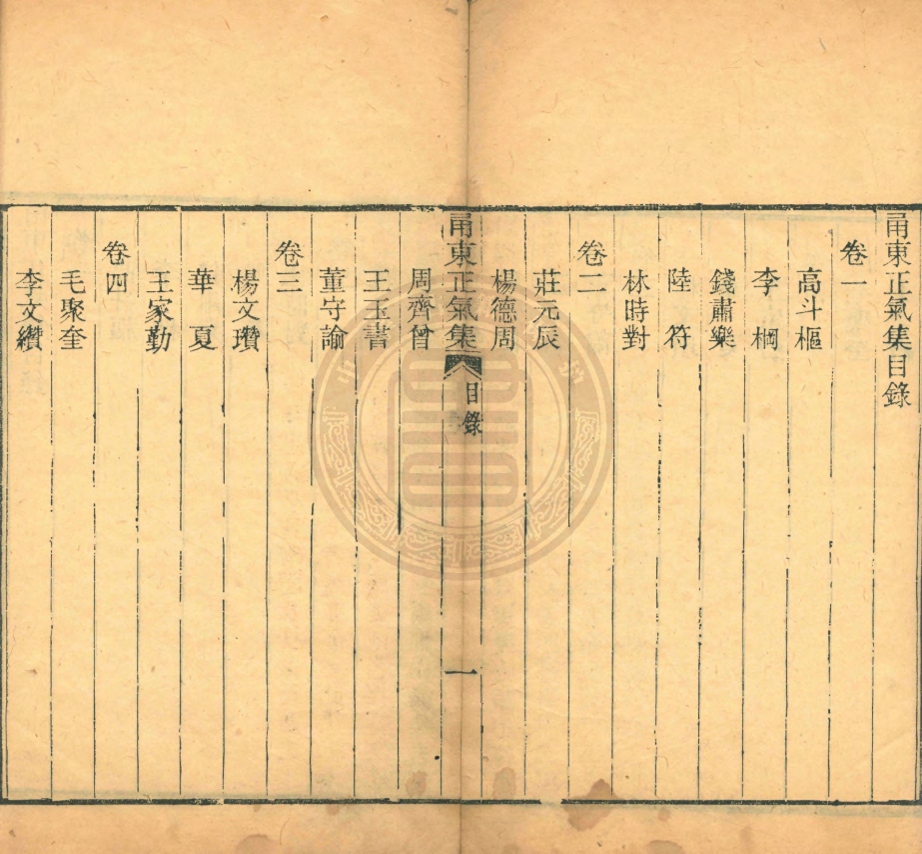 甬東正氣集目錄
卷一
高斗樞
李棡
錢肅樂
陸符
林時對
卷二
莊元辰
楊德周
甬東正氣集
目錄
一
周齊曾
王玉書
董守諭
卷三
楊文瓚
華夏
王家勤
卷四
毛聚奎
李文纘